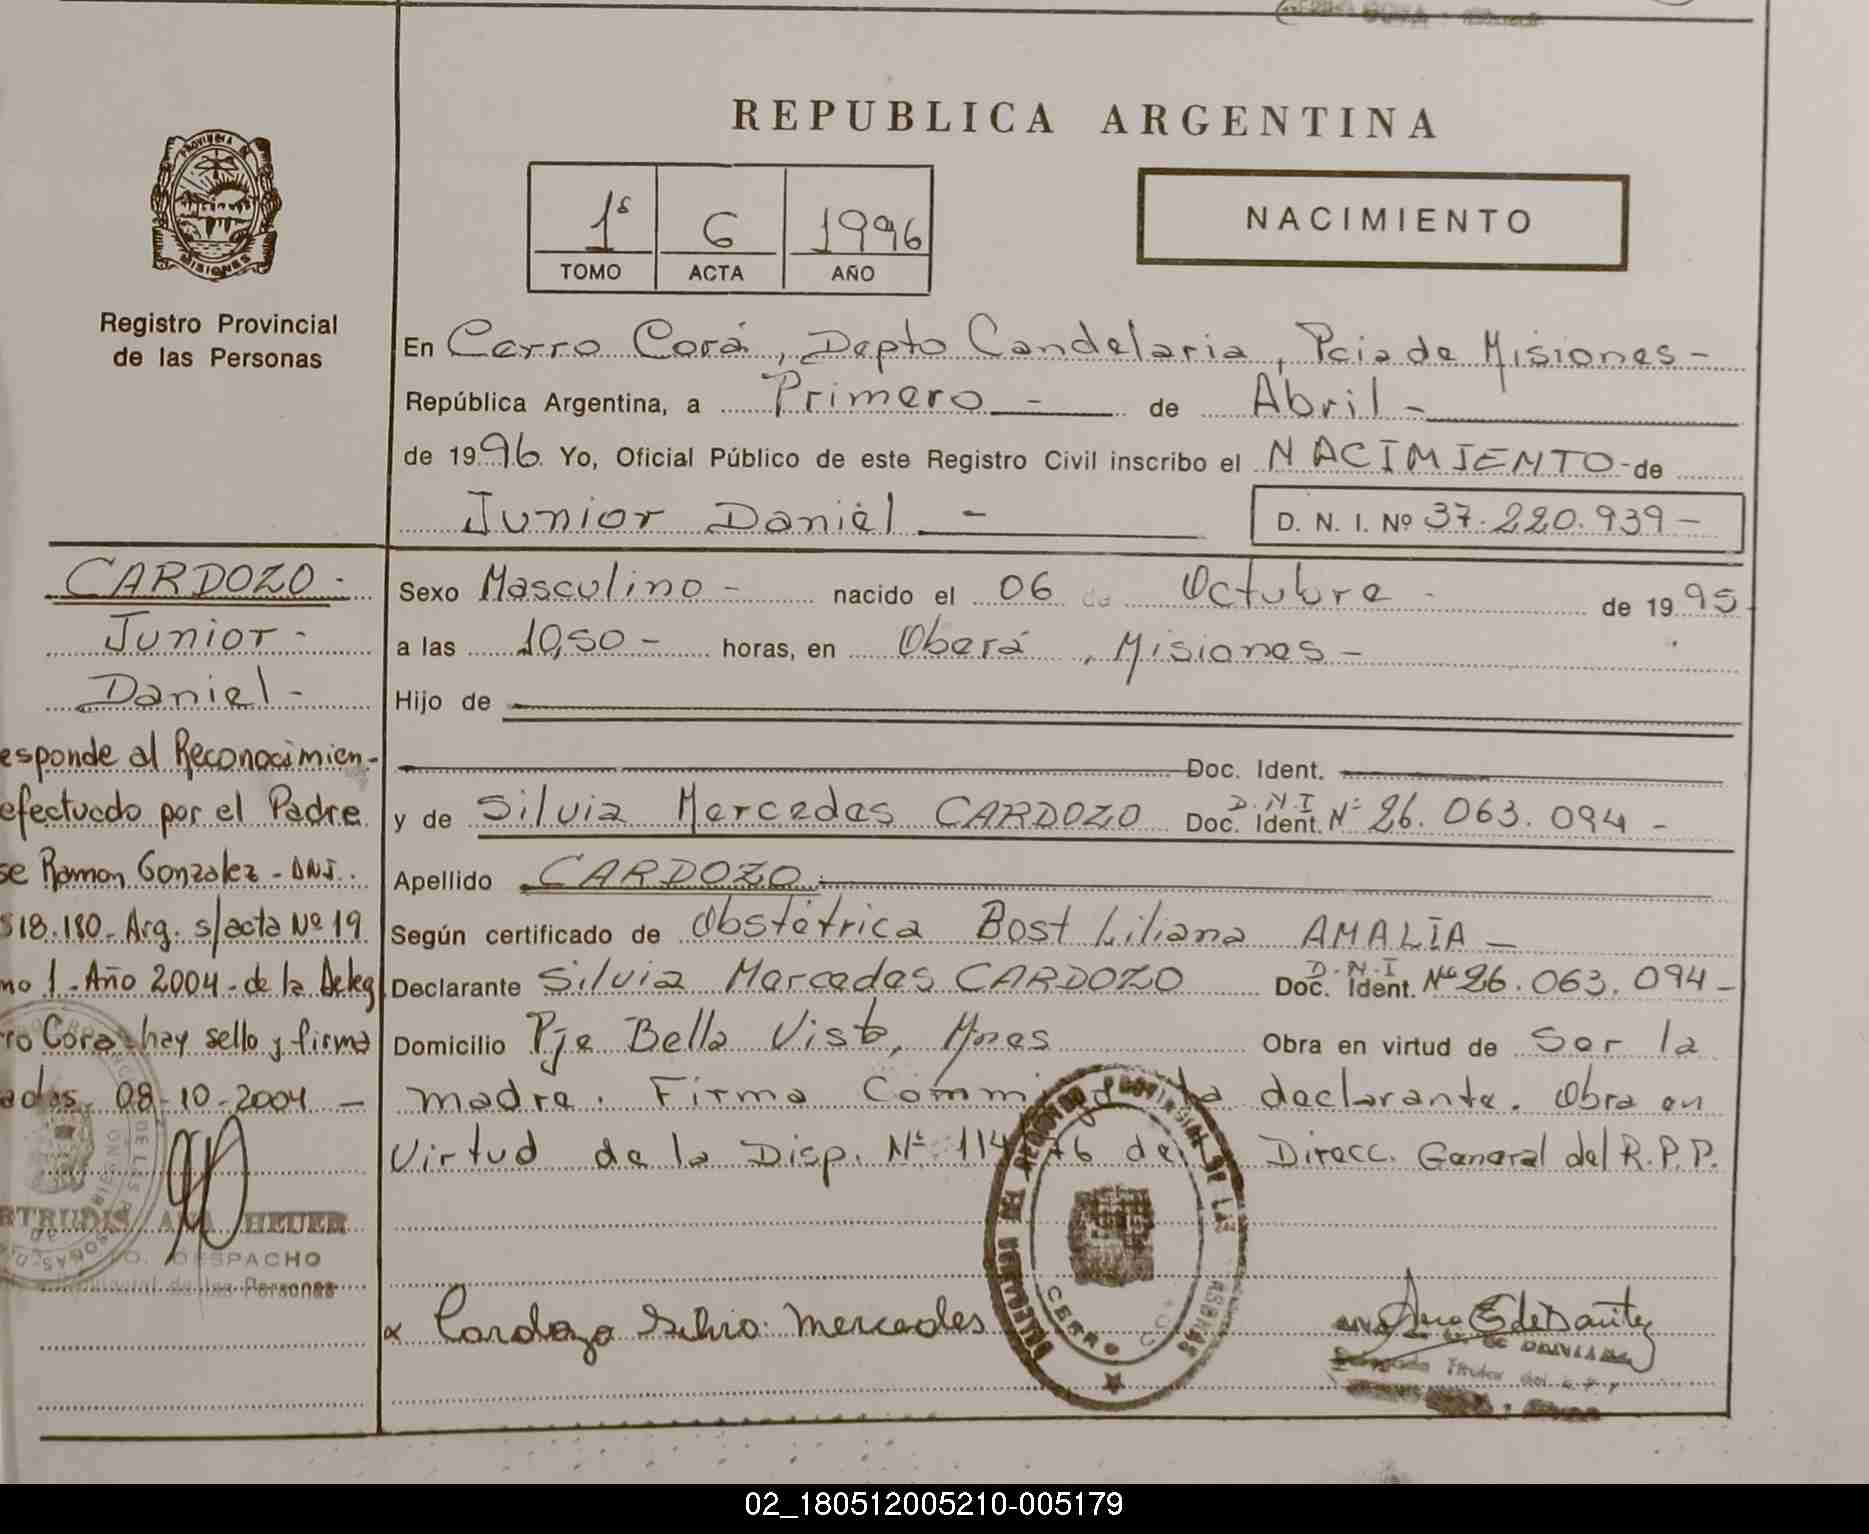 REPUBLICA ARGENTINA
PROVINCIA DE
MISIONES
Registro Provincial
de las Personas
1º 6 1996
TOMO ACTA AÑO
NACIMIENTO
En Cerro Corá, Depto Candelaria, Pcia de Misiones -
República Argentina, a Primero - de Abril -
de 1996 Yo, Oficial Público de este Registro Civil inscribo el NACIMIENTO - de
Junior Daniel - D. N. I. Nº 37.220.939 -
CARDOZO -
Junior -
Daniel -
esponde al Reconocimien-
efectuado por el Padre
se Ramon Gonzalez - DNI.
518.180 - Arg. s/acta Nº 19
mo 1 - Año 2004 - de la Deleg
ro Cora - hay sello y firma
ados. 08-10-2004 -
RTRUDIS ANA HEUER
DESPACHO
de las Personas
Sexo Masculino - nacido el 06 de Octubre - de 1995
a las 10,50 - horas, en Oberá, Misiones -
Hijo de
Doc. Ident.
y de Silvia Mercedes CARDOZO D.N.I Doc. Ident. Nº 26.063.094 -
Apellido CARDOZO
Según certificado de Obstétrica Bost Liliana AMALIA -
Declarante Silvia Mercedes CARDOZO D.N.I Doc. Ident. Nº 26.063.094 -
Domicilio Pje Bella Vista, Mnes Obra en virtud de Ser la
madre. Firma Commi la declarante. Obra en
Virtud de la Disp. Nº 114 76 de Direcc. General del R.P.P.
Cardozo Silvia Mercedes
REGISTRO PROVINCIAL DE LAS
CERRO
Titular del
02_180512005210-005179